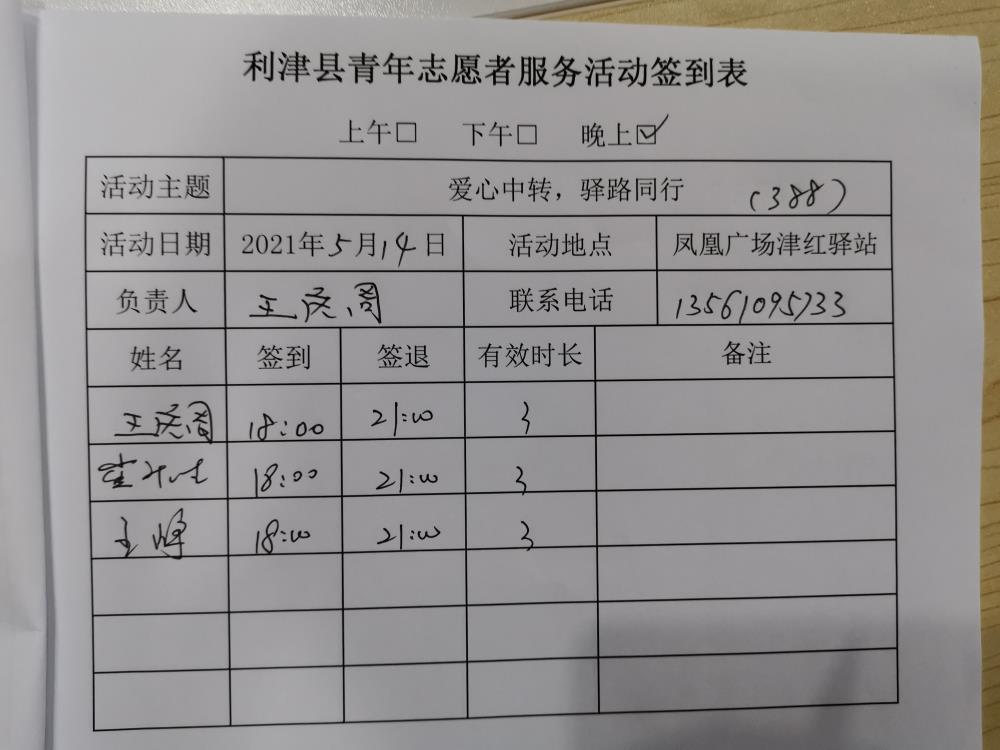 利津县青年志愿者服务活动签到表
上午□ 下午□ 晚上☑
活动主题 爱心中转，驿路同行 （388）
活动日期 2021年5月14日 活动地点 凤凰广场津红驿站
负责人 王民周 联系电话 13561095733
姓名 签到 签退 有效时长 备注
王民周 18:00 21:00 3
18:00 21:00 3
18:00 21:00 3